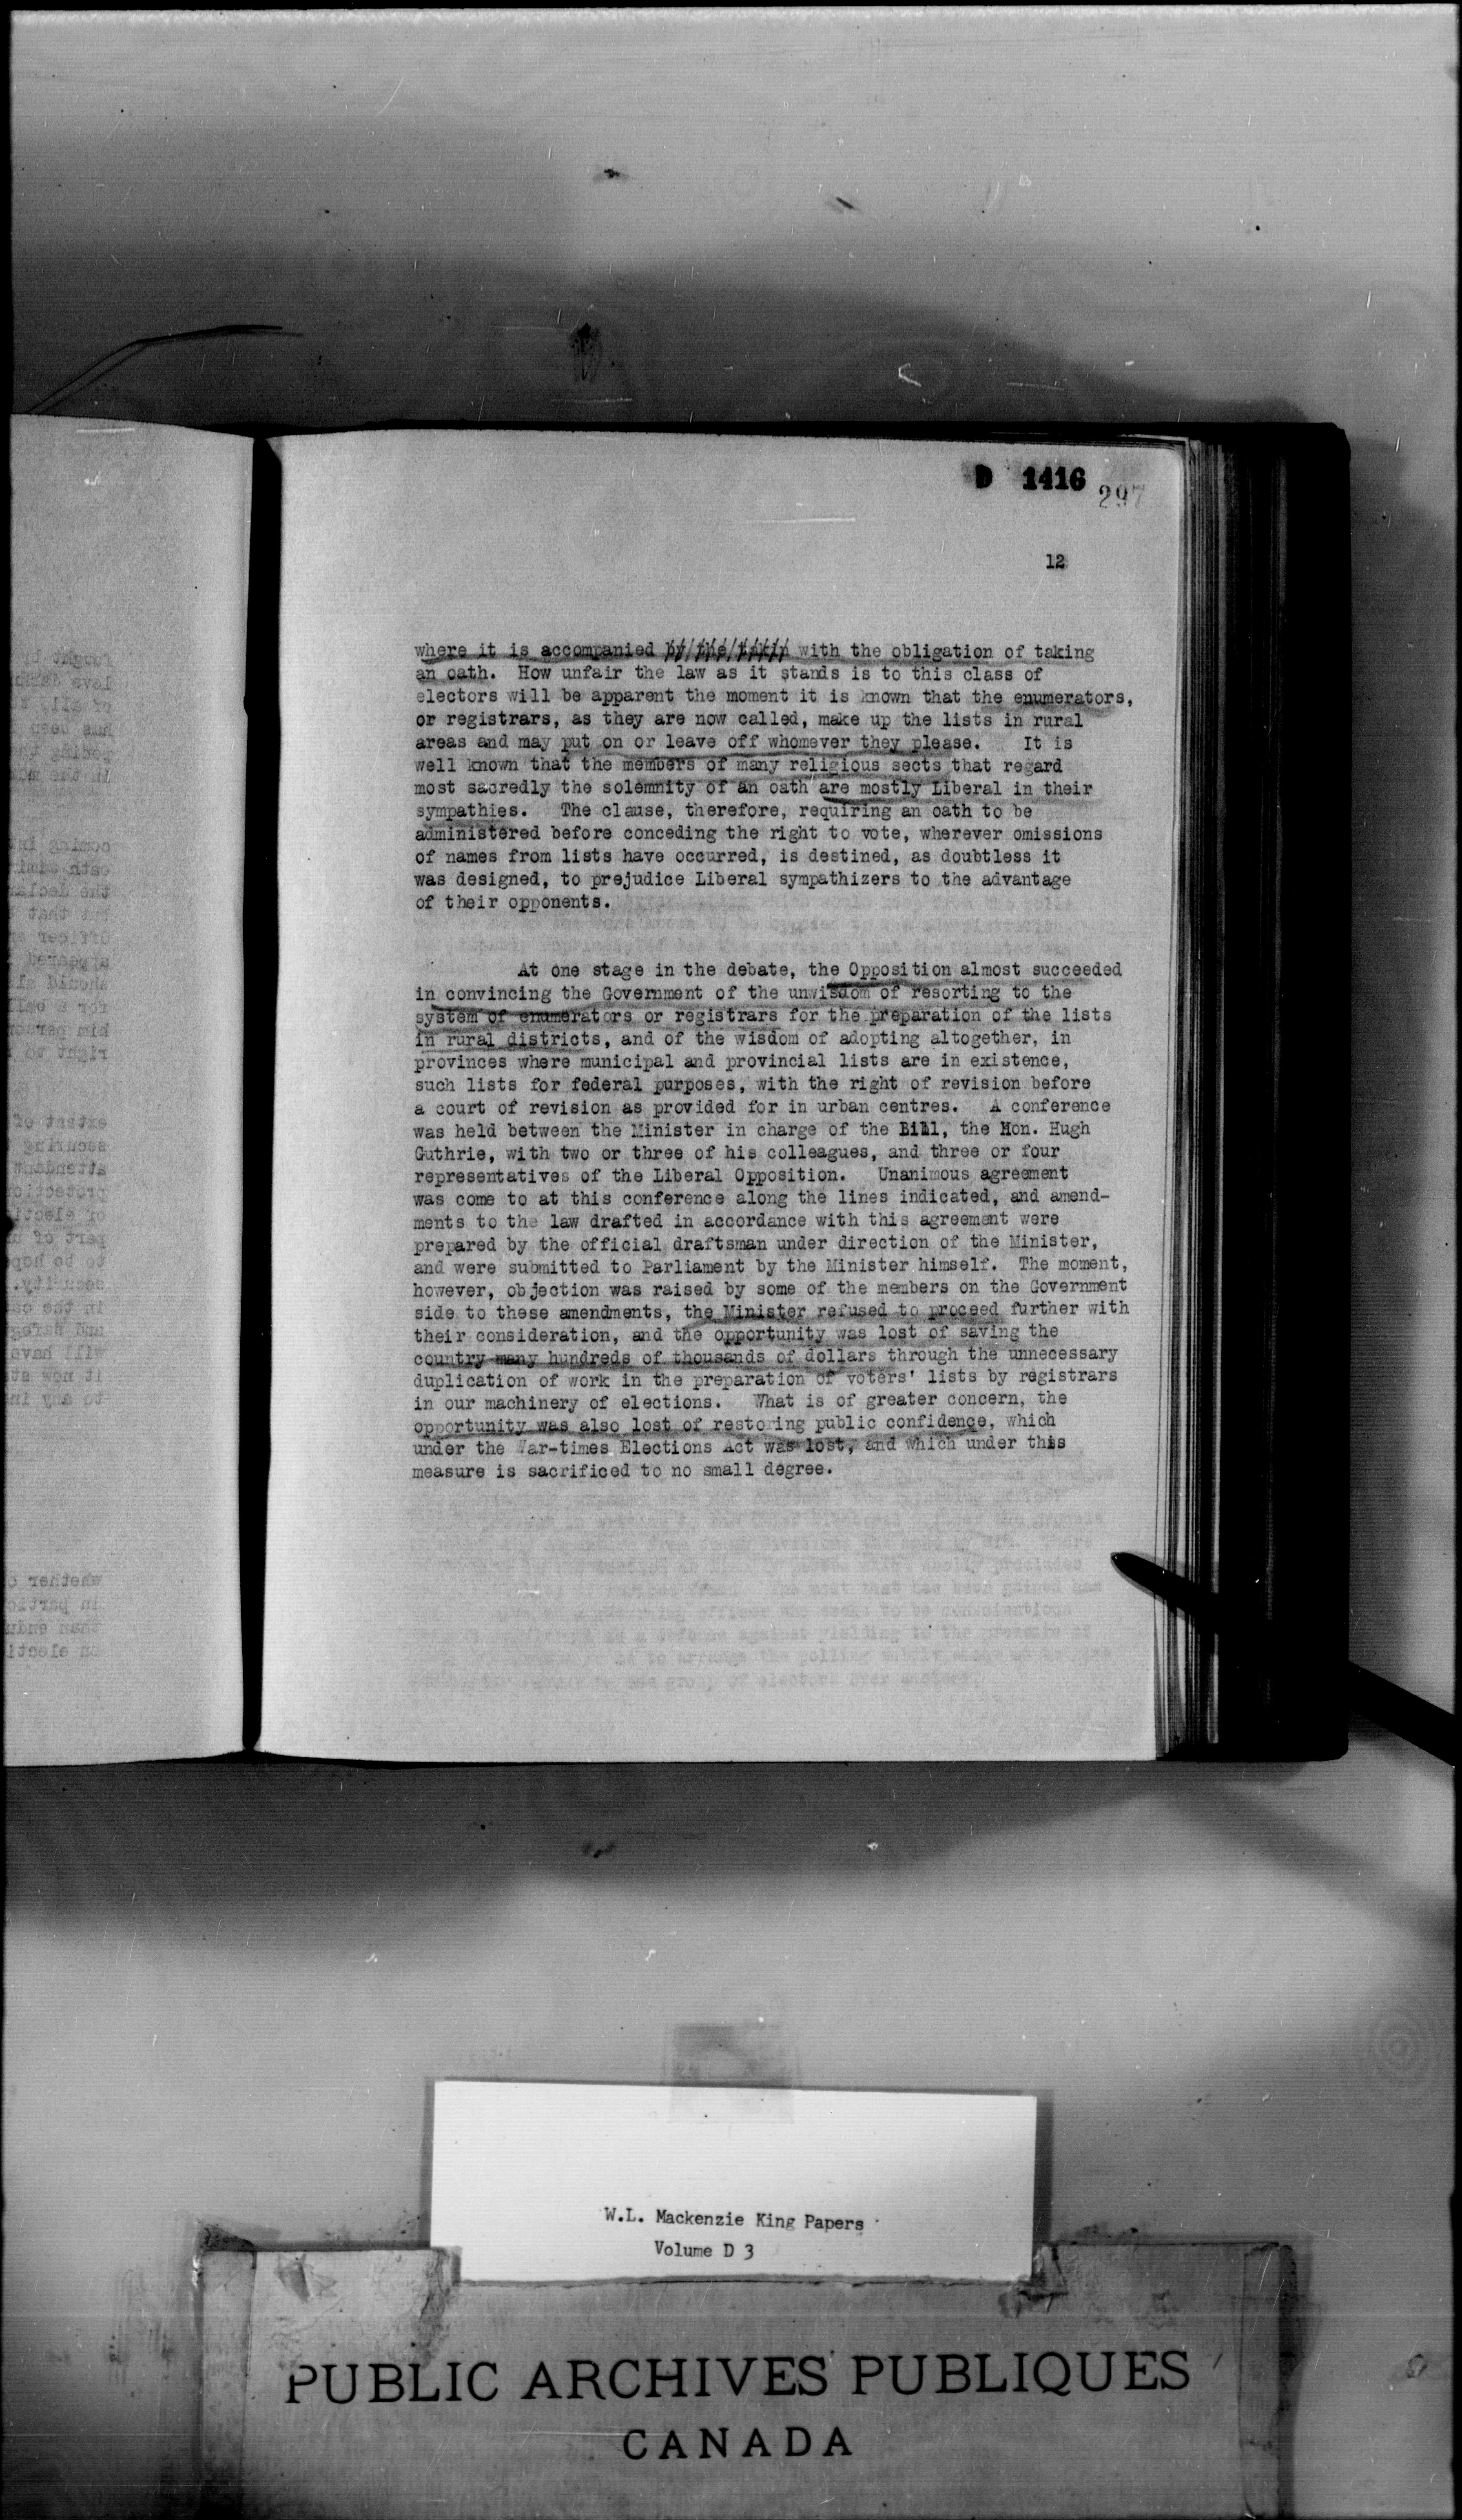 D 1416
297
12
where it is accompanied by/the/takin with the obligation of taking
an oath. How unfair the law as it stands is to this class of
electors will be apparent the moment it is known that the enumerators,
or registrars, as they are now called, make up the lists in rural
areas and may put on or leave off whomever they please. It is
well known that the members of many religious sects that regard
most sacredly the solemnity of an oath are mostly Liberal in their
sympathies. The clause, therefore, requiring an oath to be
administered before conceding the right to vote, wherever omissions
of names from lists have occurred, is destined, as doubtless it
was designed, to prejudice Liberal sympathizers to the advantage
of their opponents.
At one stage in the debate, the Opposition almost succeeded
in convincing the Government of the unwisdom of resorting to the
system of enumerators or registrars for the preparation of the lists
in rural districts, and of the wisdom of adopting altogether, in
provinces where municipal and provincial lists are in existence,
such lists for federal purposes, with the right of revision before
a court of revision as provided for in urban centres. A conference
was held between the Minister in charge of the Bill, the Hon. Hugh
Guthrie, with two or three of his colleagues, and three or four
representatives of the Liberal Opposition. Unanimous agreement
was come to at this conference along the lines indicated, and amend-
ments to the law drafted in accordance with this agreement were
prepared by the official draftsman under direction of the Minister,
and were submitted to Parliament by the Minister himself. The moment,
however, objection was raised by some of the members on the Government
side to these amendments, the Minister refused to proceed further with
their consideration, and the opportunity was lost of saving the
country many hundreds of thousands of dollars through the unnecessary
duplication of work in the preparation of voters' lists by registrars
in our machinery of elections. What is of greater concern, the
opportunity was also lost of restoring public confidence, which
under the War-times Elections Act was lost, and which under this
measure is sacrificed to no small degree.
W.L. Mackenzie King Papers
Volume D 3
PUBLIC ARCHIVES PUBLIQUES
CANADA